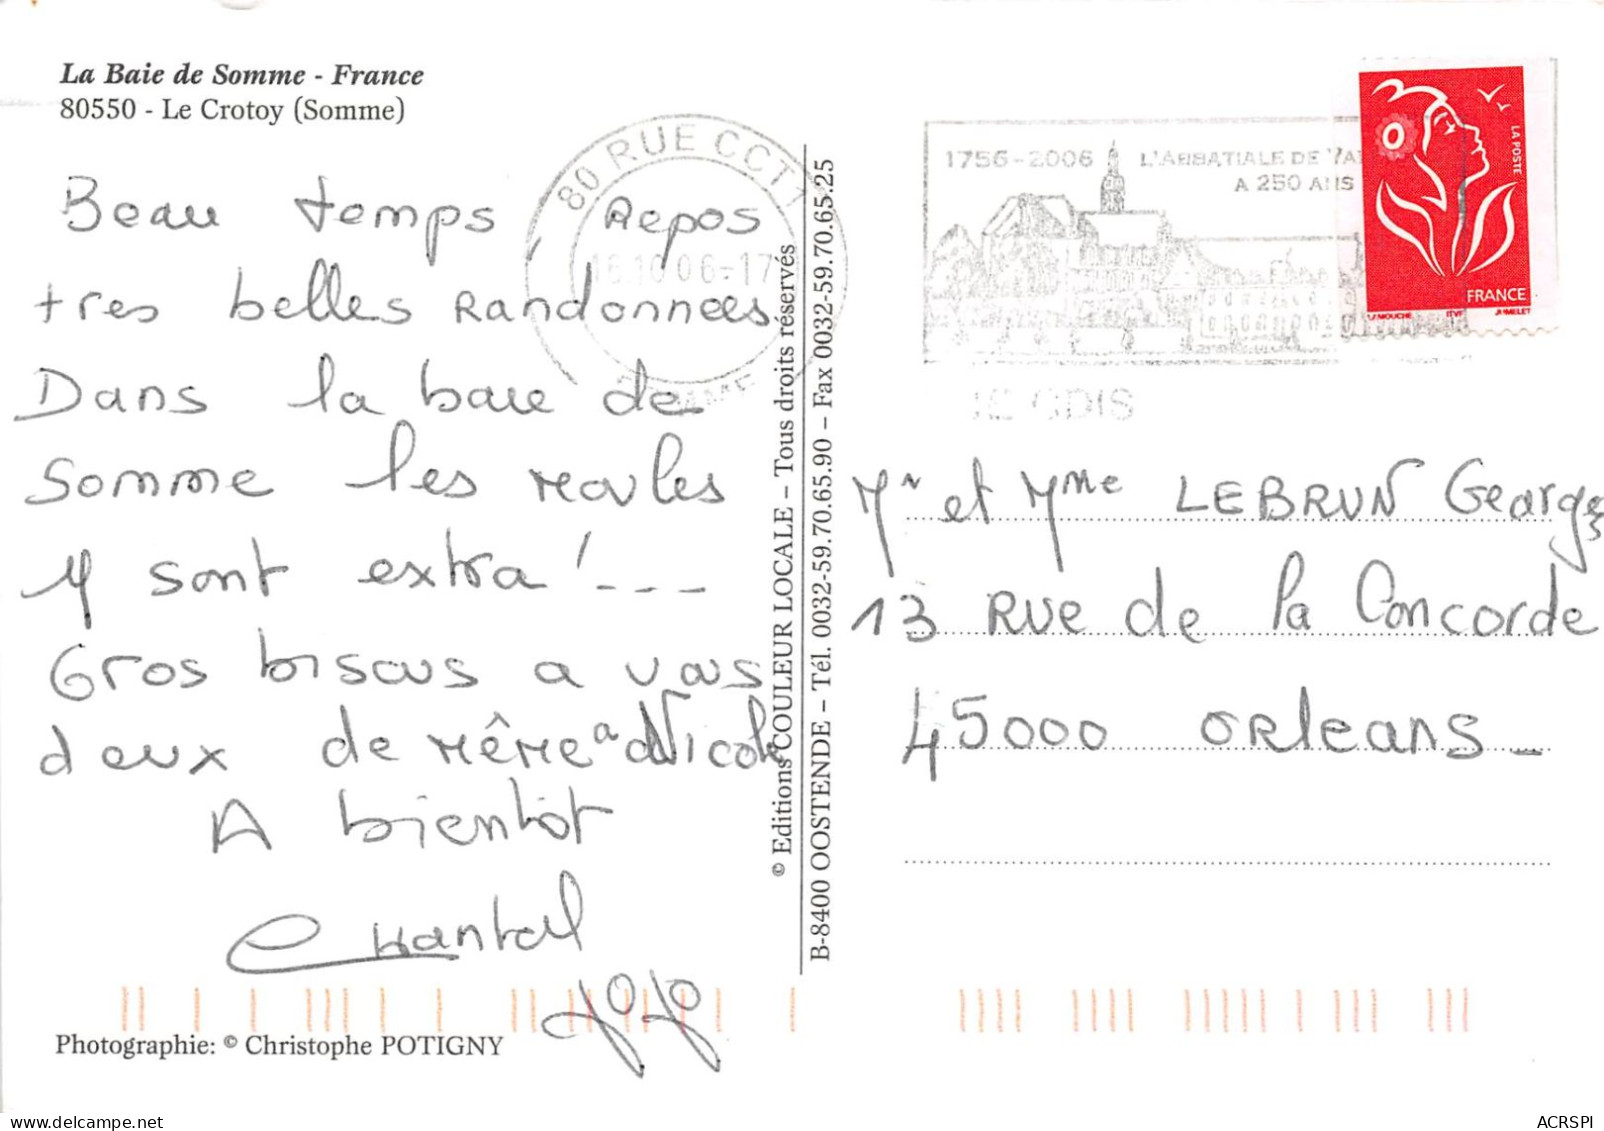 La Baie de Somme - France
80550 - Le Crotoy (Somme)
Beau temps Repos
tres belles Randonnees
Dans la baie de
Somme les moules
y sont extra !---
Gros bisous a vous
deux de même a Nicole
A bientôt
Chantal
JoJo
Photographie: © Christophe POTIGNY
80 RUE CCT1
16.10.06-17
SOMME
© Editions COULEUR LOCALE – Tous droits réservés
B-8400 OOSTENDE – Tél. 0032-59.70.65.90 – Fax 0032-59.70.65.25
1756-2006 L'ABBATIALE DE
A 250 ANS
LA POSTE
FRANCE
LAMOUCHE ITVF JUMELET
Mr et Mme LEBRUN Georges
13 Rue de la Concorde
45000 ORleans
ACRSPI